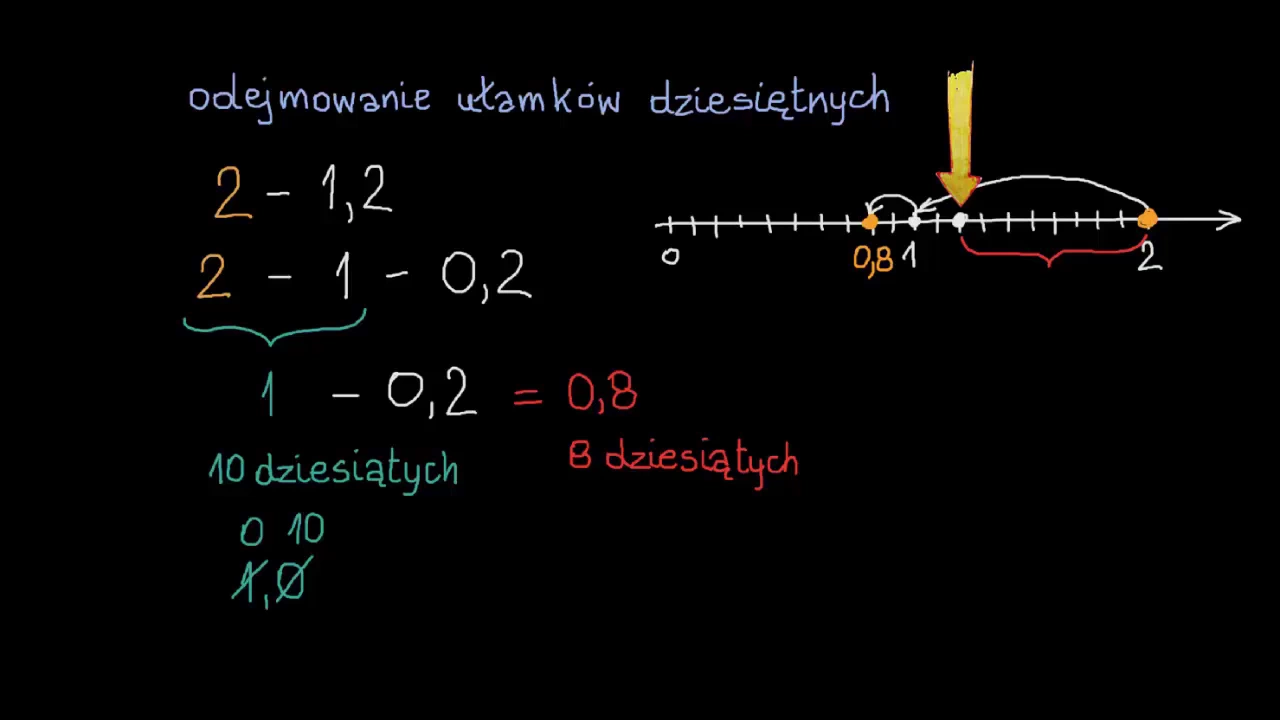 odejmowanie ułamków dziesiętnych
2 - 1,2
2 - 1 - 0,2
0 0,8 1 2
1 - 0,2 = 0,8
10 dziesiątych 8 dziesiątych
0 10
1,0